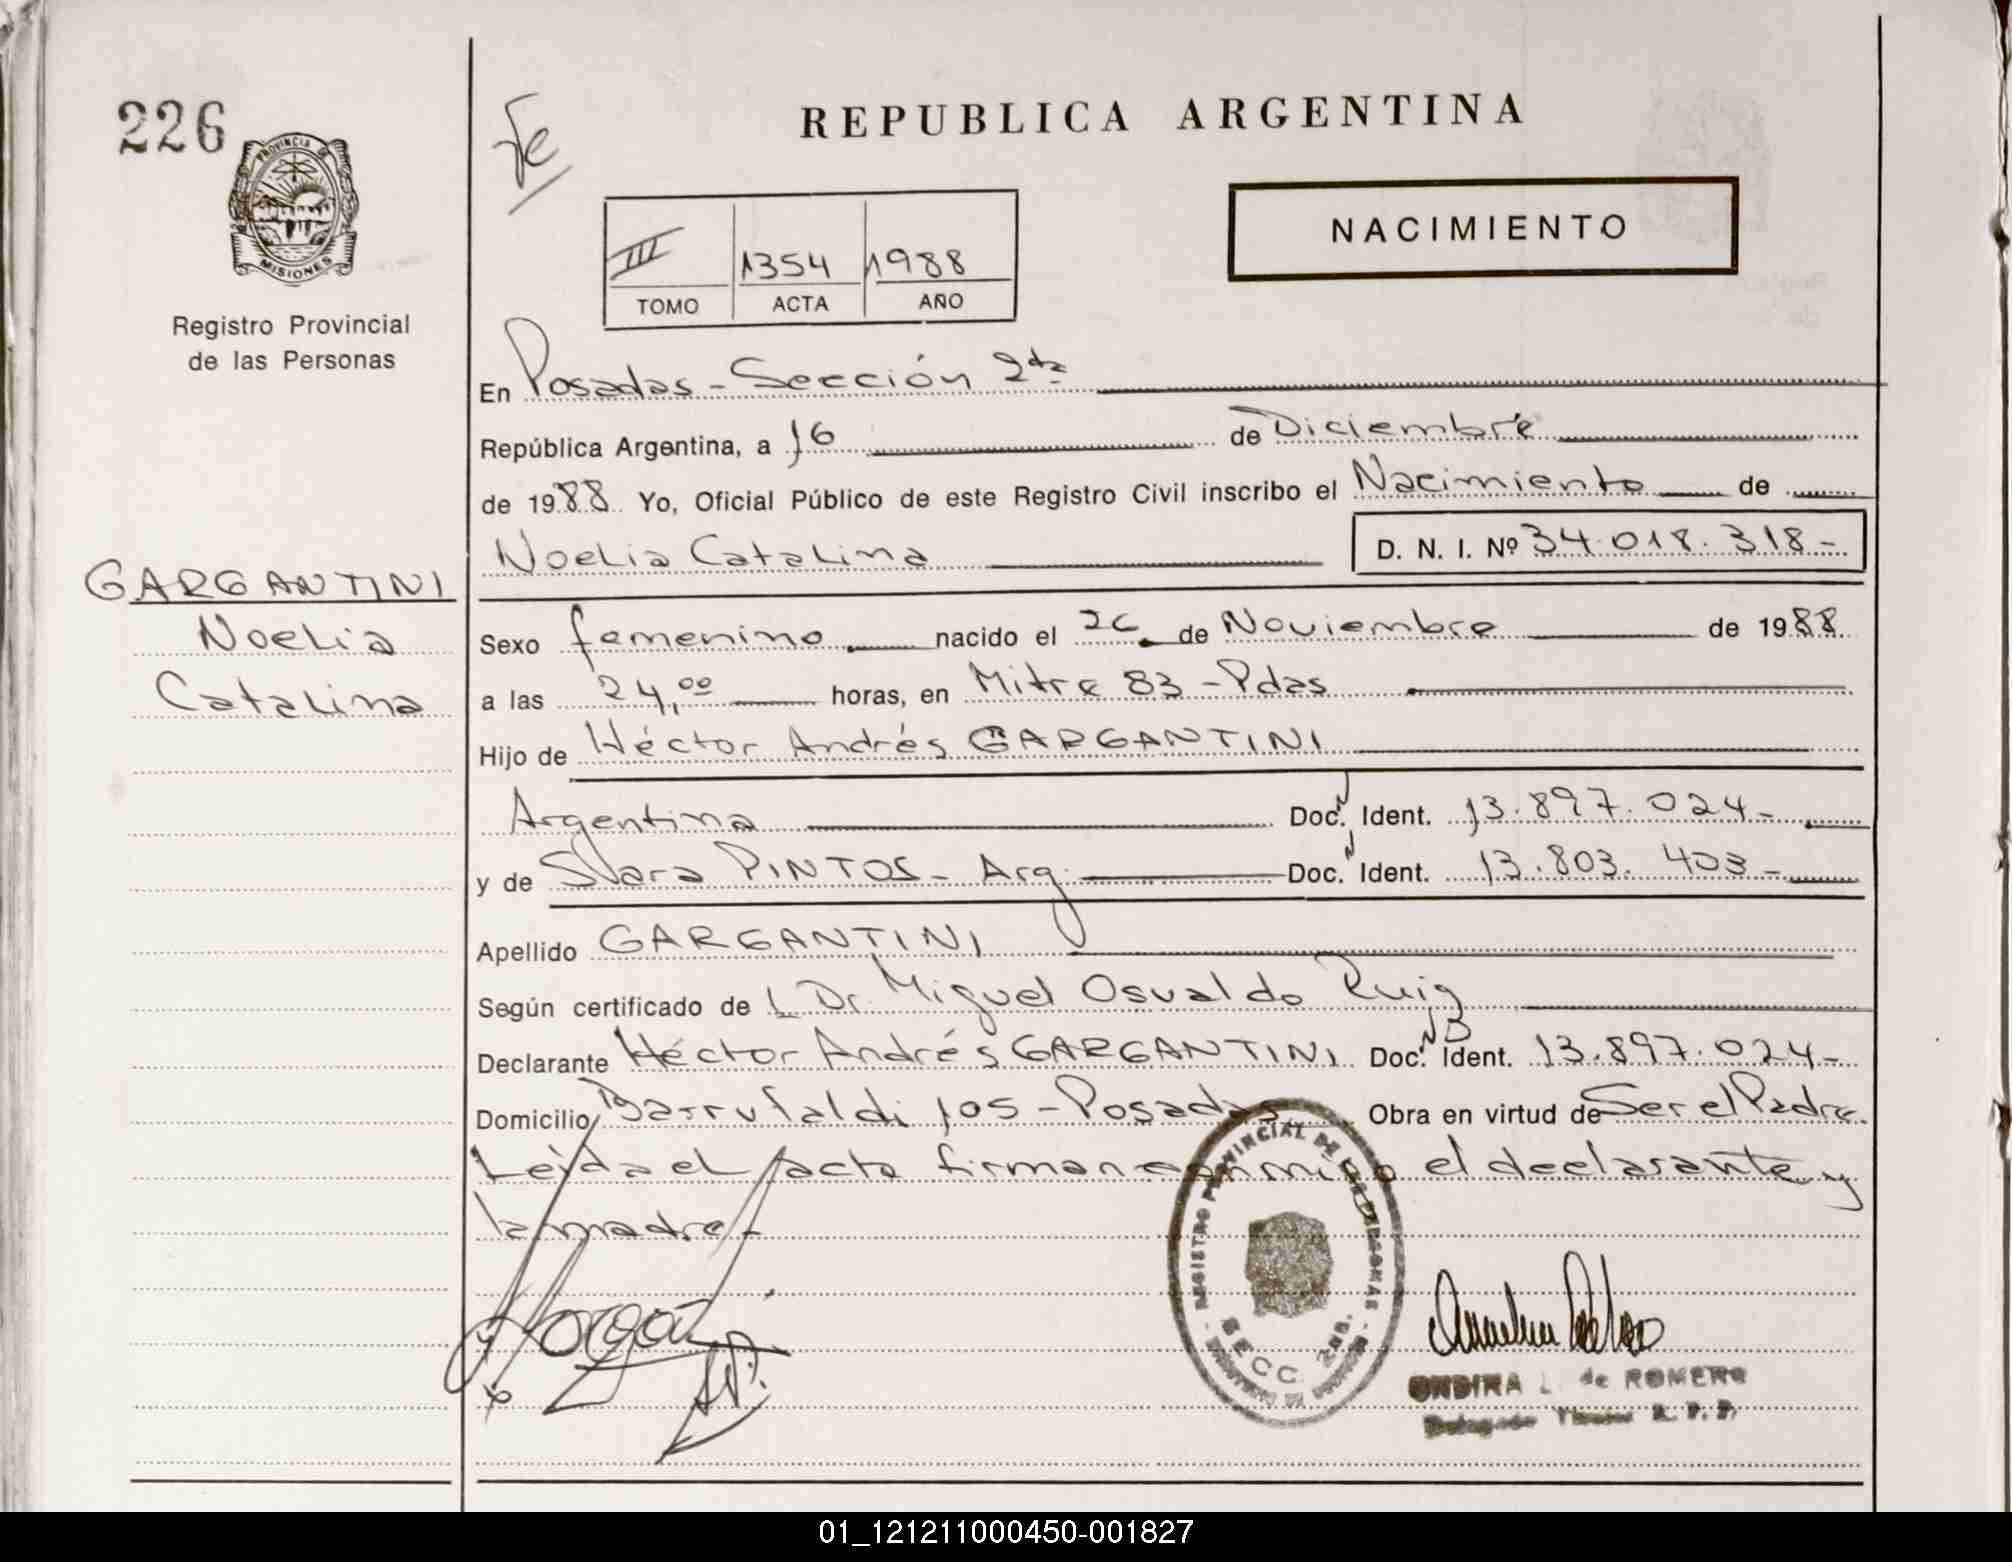 226
PROVINCIA DE
MISIONES
Registro Provincial
de las Personas
GARGANTINI
Noelia
Catalina
REPUBLICA ARGENTINA
NACIMIENTO
III 1354 1988
TOMO ACTA AÑO
En Posadas - Sección 2da
República Argentina, a 16 de Diciembre
de 1988 Yo, Oficial Público de este Registro Civil inscribo el Nacimiento de
Noelia Catalina D. N. I. Nº 34.018.318-
Sexo femenino nacido el 26 de Noviembre de 1988
a las 24,00 horas, en Mitre 83 - Pdas
Hijo de Héctor Andrés GARGANTINI
Argentina Doc. Ident. 13.897.024-
y de Sara PINTOS - Arg. Doc. Ident. 13.803.403-
Apellido GARGANTINI
Según certificado de L Dr. Miguel Osvaldo Ruig
Declarante Héctor Andrés GARGANTINI Doc. Ident. 13.897.024-
Domicilio Barrufaldi 105 - Posadas Obra en virtud de Ser el Padre
Leída el acta firman conmigo el declarante y
la madre -
REGISTRO PROVINCIAL DE LAS PERSONAS
SECC. 2da.
ONDINA L. de ROMERO
R. P. P.
01_121211000450-001827